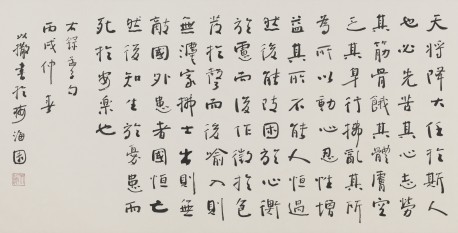 天将降大任於斯人
也必先苦其心志勞
其筋骨餓其體膚空
乏其身行拂亂其所
為所以動心忍性增
益其所不能人恒過
然後能改困於心衡
於慮而後作徵於色
發於聲而後喻入則
無灋家拂士出則無
敵國外患者國恒亡
然後知生於憂患而
死於安樂也
右錄孟子句
丙戌仲春
以撒書於海園